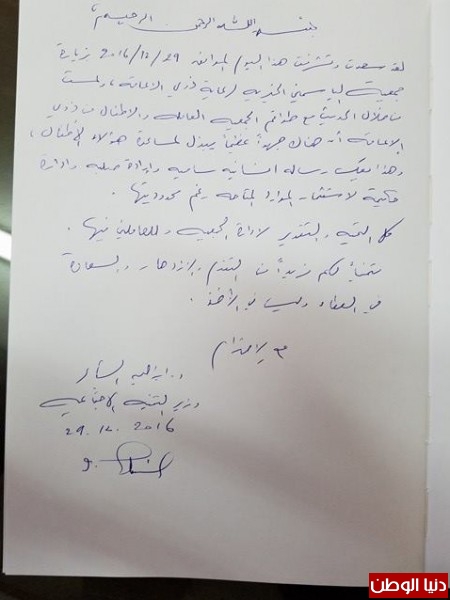 بسم الله الرحمن الرحيم
لقد سعدت وتشرفت هذا اليوم الموافق 2016/12/29 بزيارة
جمعية الياسمين الخيرية لرعاية ذوي الاعاقة، ولمست
من خلال الحديث مع طواقم الجمعية العاملة والاطفال من ذوي
الاعاقة أن هناك جهداً عظيماً يبذل لمساعدة هؤلاء الأطفال،
وهذا يعكس رسالة انسانية سامية وإرادة صلبة وادارة
حكيمة لاستثمار الموارد المتاحة رغم محدوديتها.
كل التحية والتقدير لادارة الجمعية وللعاملين فيها.
متمنياً لكم مزيداً من التقدم والازدهار والسعادة
في العطاء وليس في الأخذ.
مع الاحترام
د. ابراهيم الشاعر
وزير التنمية الاجتماعية
29.12.2016
دنيا الوطن